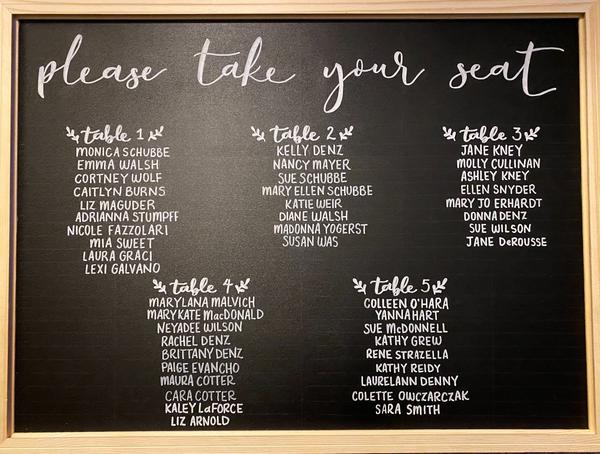 please take your seat
table 1
MONICA SCHUBBE
EMMA WALSH
CORTNEY WOLF
CAITLYN BURNS
LIZ MAGUDER
ADRIANNA STUMPFF
NICOLE FAZZOLARI
MIA SWEET
LAURA GRACI
LEXI GALVANO
table 2
KELLY DENZ
NANCY MAYER
SUE SCHUBBE
MARY ELLEN SCHUBBE
KATIE WEIR
DIANE WALSH
MADONNA YOGERST
SUSAN WAS
table 3
JANE KNEY
MOLLY CULLINAN
ASHLEY KNEY
ELLEN SNYDER
MARY JO ERHARDT
DONNA DENZ
SUE WILSON
JANE DeROUSSE
table 4
MARYLANA MALVICH
MARYKATE MacDONALD
NEYADEE WILSON
RACHEL DENZ
BRITTANY DENZ
PAIGE EVANCHO
MAURA COTTER
CARA COTTER
KALEY LaFORCE
LIZ ARNOLD
table 5
COLLEEN O'HARA
YANNA HART
SUE McDONNELL
KATHY GREW
RENE STRAZELLA
KATHY REIDY
LAURELANN DENNY
COLETTE OWCZARCZAK
SARA SMITH